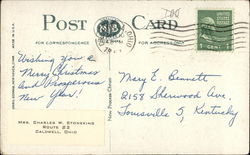 POST CARD
FOR CORRESPONDENCE
FOR ADDRESS ONLY
OHIO
1 CENT 1
Wishing you a
Merry Christmas
And Prosperous
New Year!
Mary E. Bennett
2158 Sherwood Ave.
Louisville 5, Kentucky
MRS. CHARLES W. STONEKING
ROUTE 22
CALDWELL, OHIO